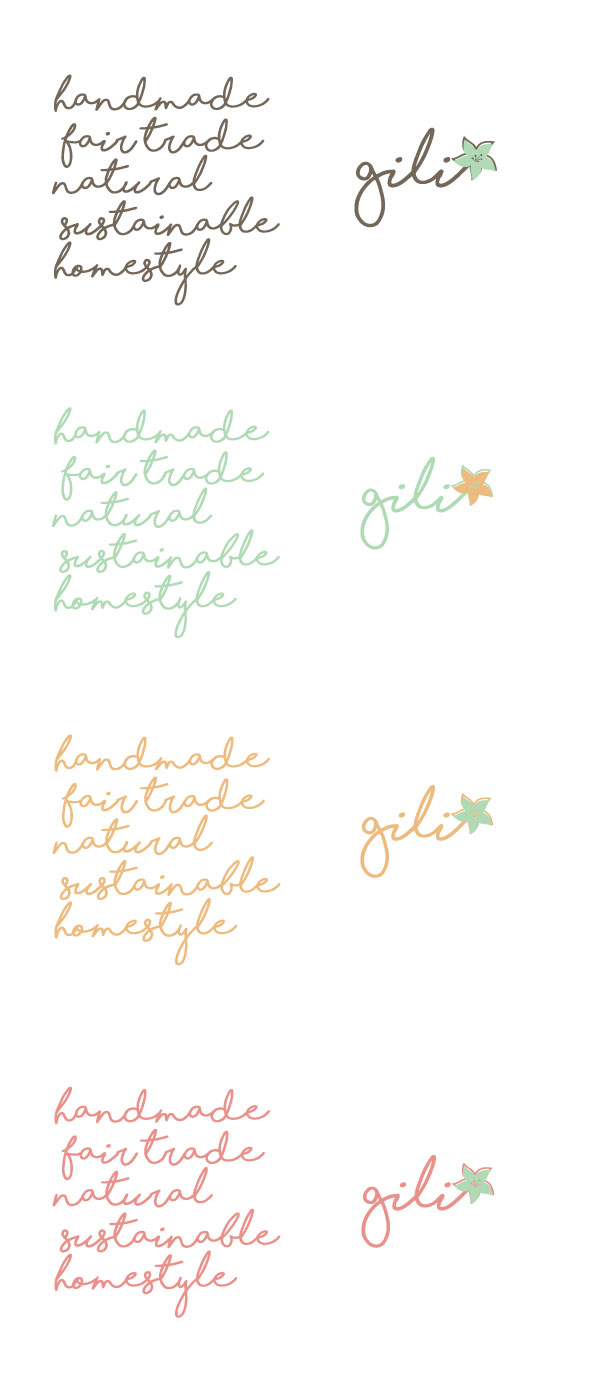 handmade
fair trade
natural
sustainable
homestyle
gili
handmade
fair trade
natural
sustainable
homestyle
gili
handmade
fair trade
natural
sustainable
homestyle
gili
handmade
fair trade
natural
sustainable
homestyle
gili